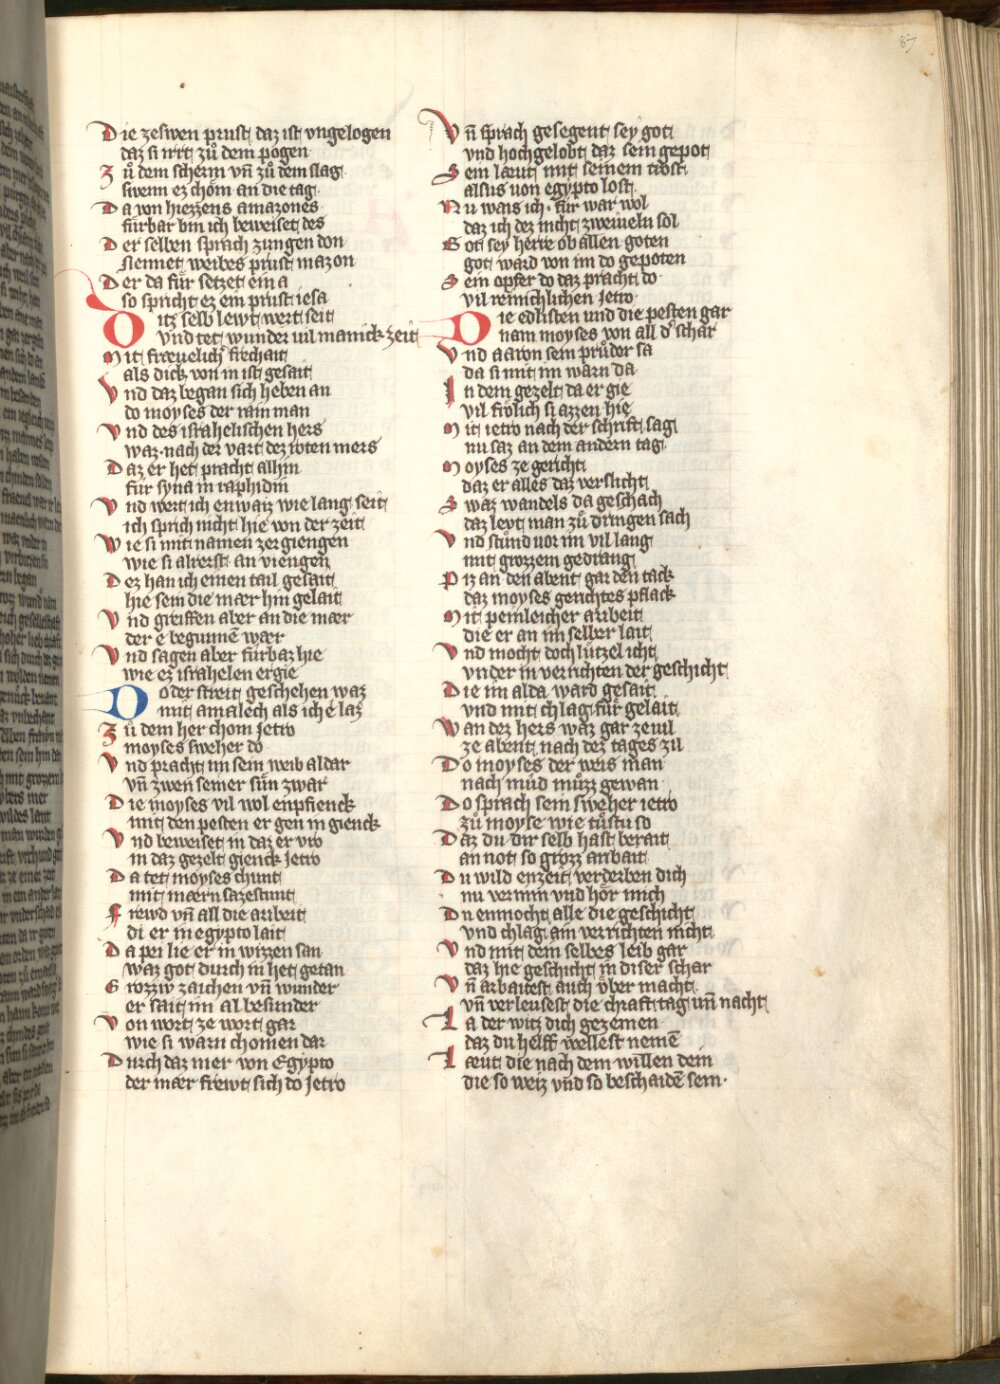 87
Die zeswen prust daz ist vngelogen
daz si irrt zů dem pogen
Zů dem scherm vñ zů dem slag
swenn ez chom an die tag
Da von hiezzens amazones
fürbar bin ich beweiset des
Der selben sprach zungen don
Nennet weibes prust mazon
Der da für setzet ein a
so spricht ez ein prust iesa
Ditz selb lewt wert seit
Vnd tet wunder vil manick zeit
Mit fræuelich frechait
als dick von in ist gesait
Vnd daz began sich heben an
do moyses der rain man
Vnd des israhelischen hers
waz nach der vart dez roten mers
Daz er het pracht allhin
für syna in raphidin
Vnd wert ich enwaiz wie lang seit
ich sprich nicht hie von der zeit
Wie si mit namen zergiengen
wie si alrerst an viengen
Dez han ich einen tail gesait
hie sein die mær hin gelait
Vnd greiffen aber an die mær
der e begunnē wær
Vnd sagen aber fürbaz hie
wie ez israhelen ergie
Do der streit geschehen waz
mit amalech als ich e laz
Zů dem her chom Jetro
moyses sweher do
Vnd pracht im sein weib aldar
vñ zwen seiner sün zwar
Die moyses vil wol enpfienck
mit den pesten er gen in gienck
Vnd beweiset in daz er vro
in daz gezelt gienck Jetro
Da tet moyses chunt
mit mærn sazestunt
Frewd vñ all die arbeit
di er in egypto lait
Da pei lie er in wizzen san
waz got durch in het getan
Grozziv zaichen vñ wunder
er sait im al besunder
Von wort ze wort gar
wie si warn chomen dar
Durch daz mer von Egypto
der mær frewt sich do Jetro
Vñ sprach gesegent sey got
vnd hochgelobt daz sein gepot
Sein læut mit seinem trost
alsus von egypto lost
Nu wais ich für war wol
daz ich dez nicht zweiueln sol
Got sey herre ob allen goten
got ward von im do gepoten
Sein opfer do daz pracht do
vil reinichlichen Jetro
Die edlisten und die pesten gar
nam moyses von all d' schar
Vnd aaron sein průder sa
da si mit im warn da
In dem gezelt da er gie
vil frölich si azzen hie
Mit ietro nach der schrift sag
nu saz an dem andern tag
Moyses ze gericht
daz er alles daz verslicht
Swaz wandels da geschach
daz levt man zů dringen sach
Vnd stůnd vor im vil lang
mit grozzem gedrang
Piz an den abent gar den tack
daz moyses gerichtes pflack
Mit peinleicher arbeit
die er an im selber lait
Vnd mocht doch lützel icht
vnder in verichten der geschicht
Die im alda ward gesait
vnd mit chlag für gelait
Wan dez hers waz gar zeuil
ze abent nach dez tages zil
Do moyses der weis man
nach müd müzz gewan
Do sprach sein sweher ietro
zů moyse wie tůstu so
Daz du dir selb hast berait
an not so grozz arbait
Du wild enzeit verderben dich
nu vernim vnd hör mich
Du enmocht alle die geschicht
vnd chlag ain verrichten nicht
Vnd mit dem selbes leib gar
daz hie geschicht in diser schar
Vñ arbaitest auch vber macht
vñ verleusest die chraft tag vñ nacht
La der witz dich gezemen
daz du helff wellest nemē
Læut die nach dem willen dem
die so weiz vnd so beschaidē sein